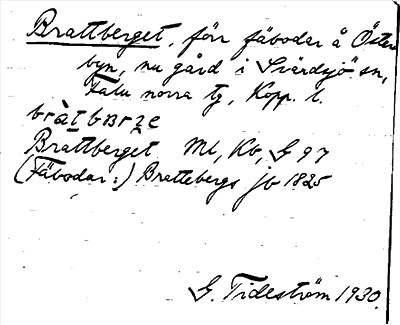 Brattberget, förr fäbodar å Öster
byn, nu gård i Svärdsjö sn,
Falu norra tg, Kopp. l.
Brattberget Ml, Kb, G 97
(Fäbodar:) Brattebergs jb 1825
G. Tideström 1930.